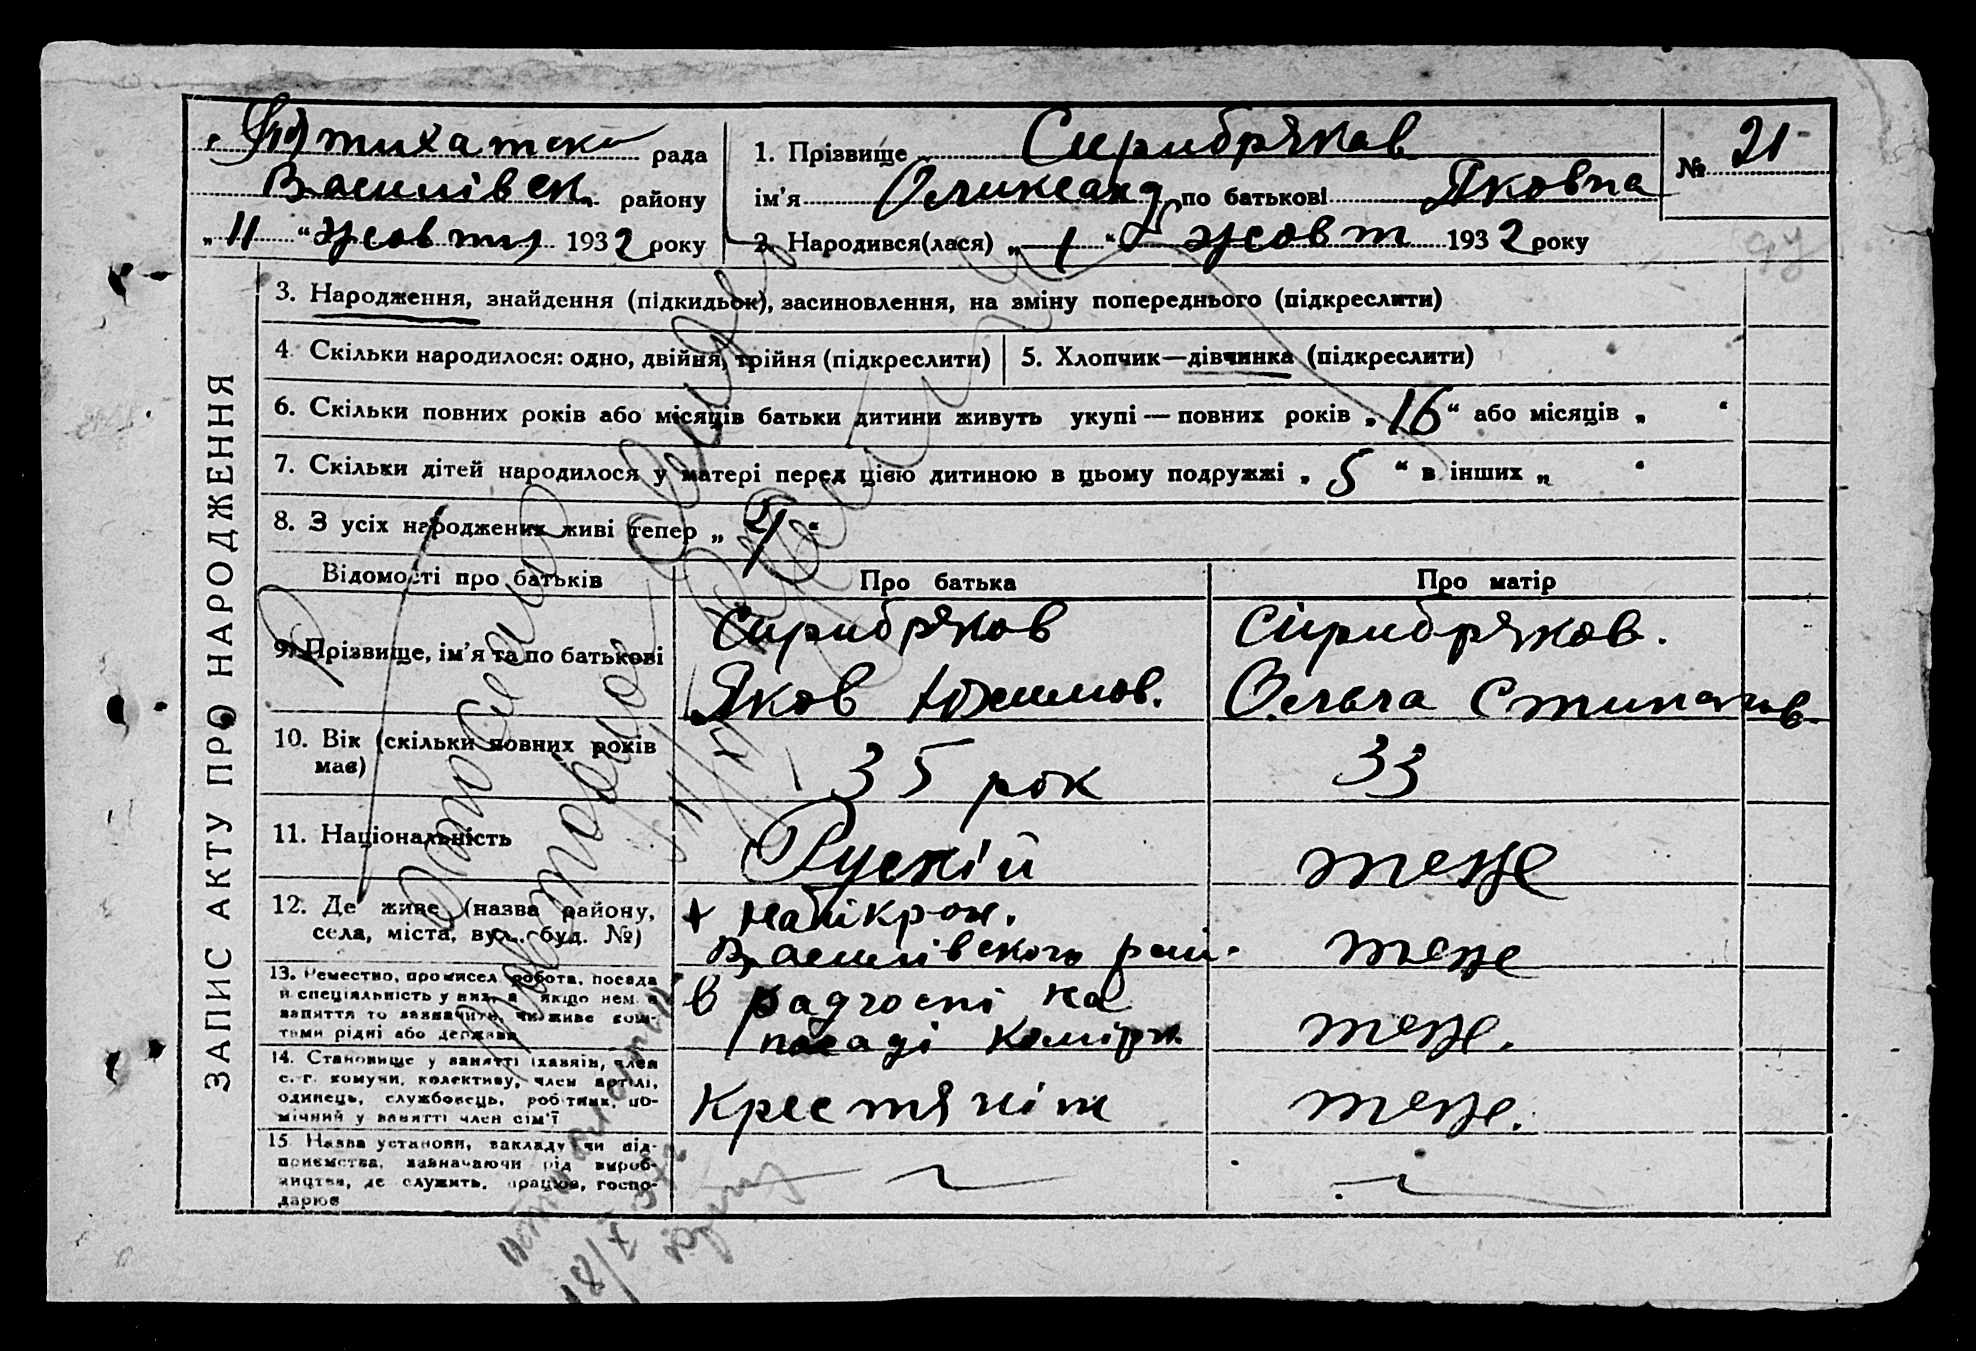 рада
Василівськ. району
„ 11 “ жовтня 1932 року
1. Прізвище Сирибряков
ім'я Олександ по батькові Яковна
2. Народився(лася) „ 1 “ жовт 1932 року
№ 21
ЗАПИС АКТУ ПРО НАРОДЖЕННЯ
3. Народження, знайдення (підкидьок), засиновлення, на зміну попереднього (підкреслити)
4. Скільки народилося: одно, двійня, трійня (підкреслити)
5. Хлопчик—дівчинка (підкреслити)
6. Скільки повних років або місяців батьки дитини живуть укупі — повних років „ 16 “ або місяців „ “
7. Скільки дітей народилося у матері перед цією дитиною в цьому подружжі „ 5 “ в інших „ “
8. З усіх народжених живі тепер „ “
Відомості про батьків
Про батька
Про матір
9. Прізвище, ім'я та по батькові
Сирибряков
Яков Юхимов.
Сирибряков.
Ольга Стипанов.
10. Вік (скільки повних років
має)
35 рок
33
11. Національність
Рускій
теже
12. Де живе (назва району,
села, міста, вул., буд. №)
Василівского рай.
теже
13. Ремество, промисел робота, посада
й спеціяльність у них, а якщо нема
заняття то зазначити, чи живе кош-
тами рідні або держави
в радгоспі на
посаді комірн
теже.
14. Становище у занятті (хазяїн, член
с.-г. комуни, колективу, член артілі,
одинець, службовець, робітник, по-
мічний у занятті член сім'ї
Крестянін
теже.
15. Назва установи, закладу чи під-
приємства, зазначаючи рід вироб-
ництва, де служить, працює, госпо-
дарює